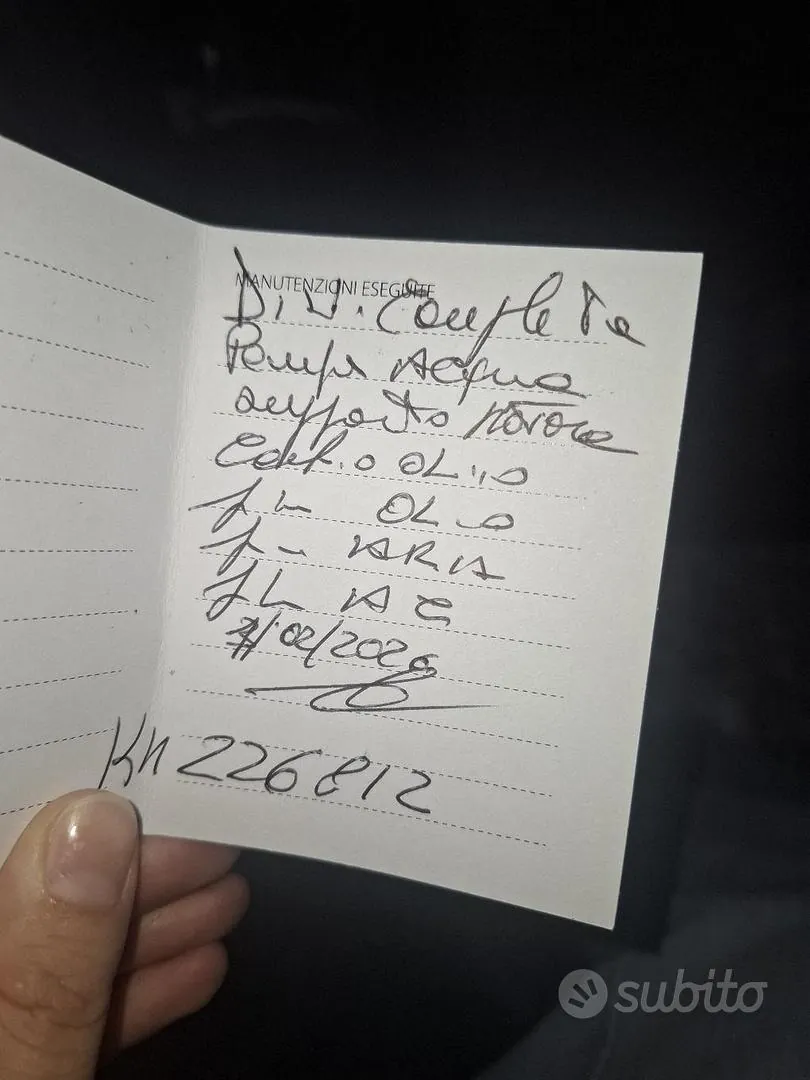 MANUTENZIONI ESEGUITE
D.V. Completa
Pompa Acqua
supporto Motore
Cambio OLIO
FIL OLIO
FIL ARIA
FIL AC
/02/2026
KM 226812
subito